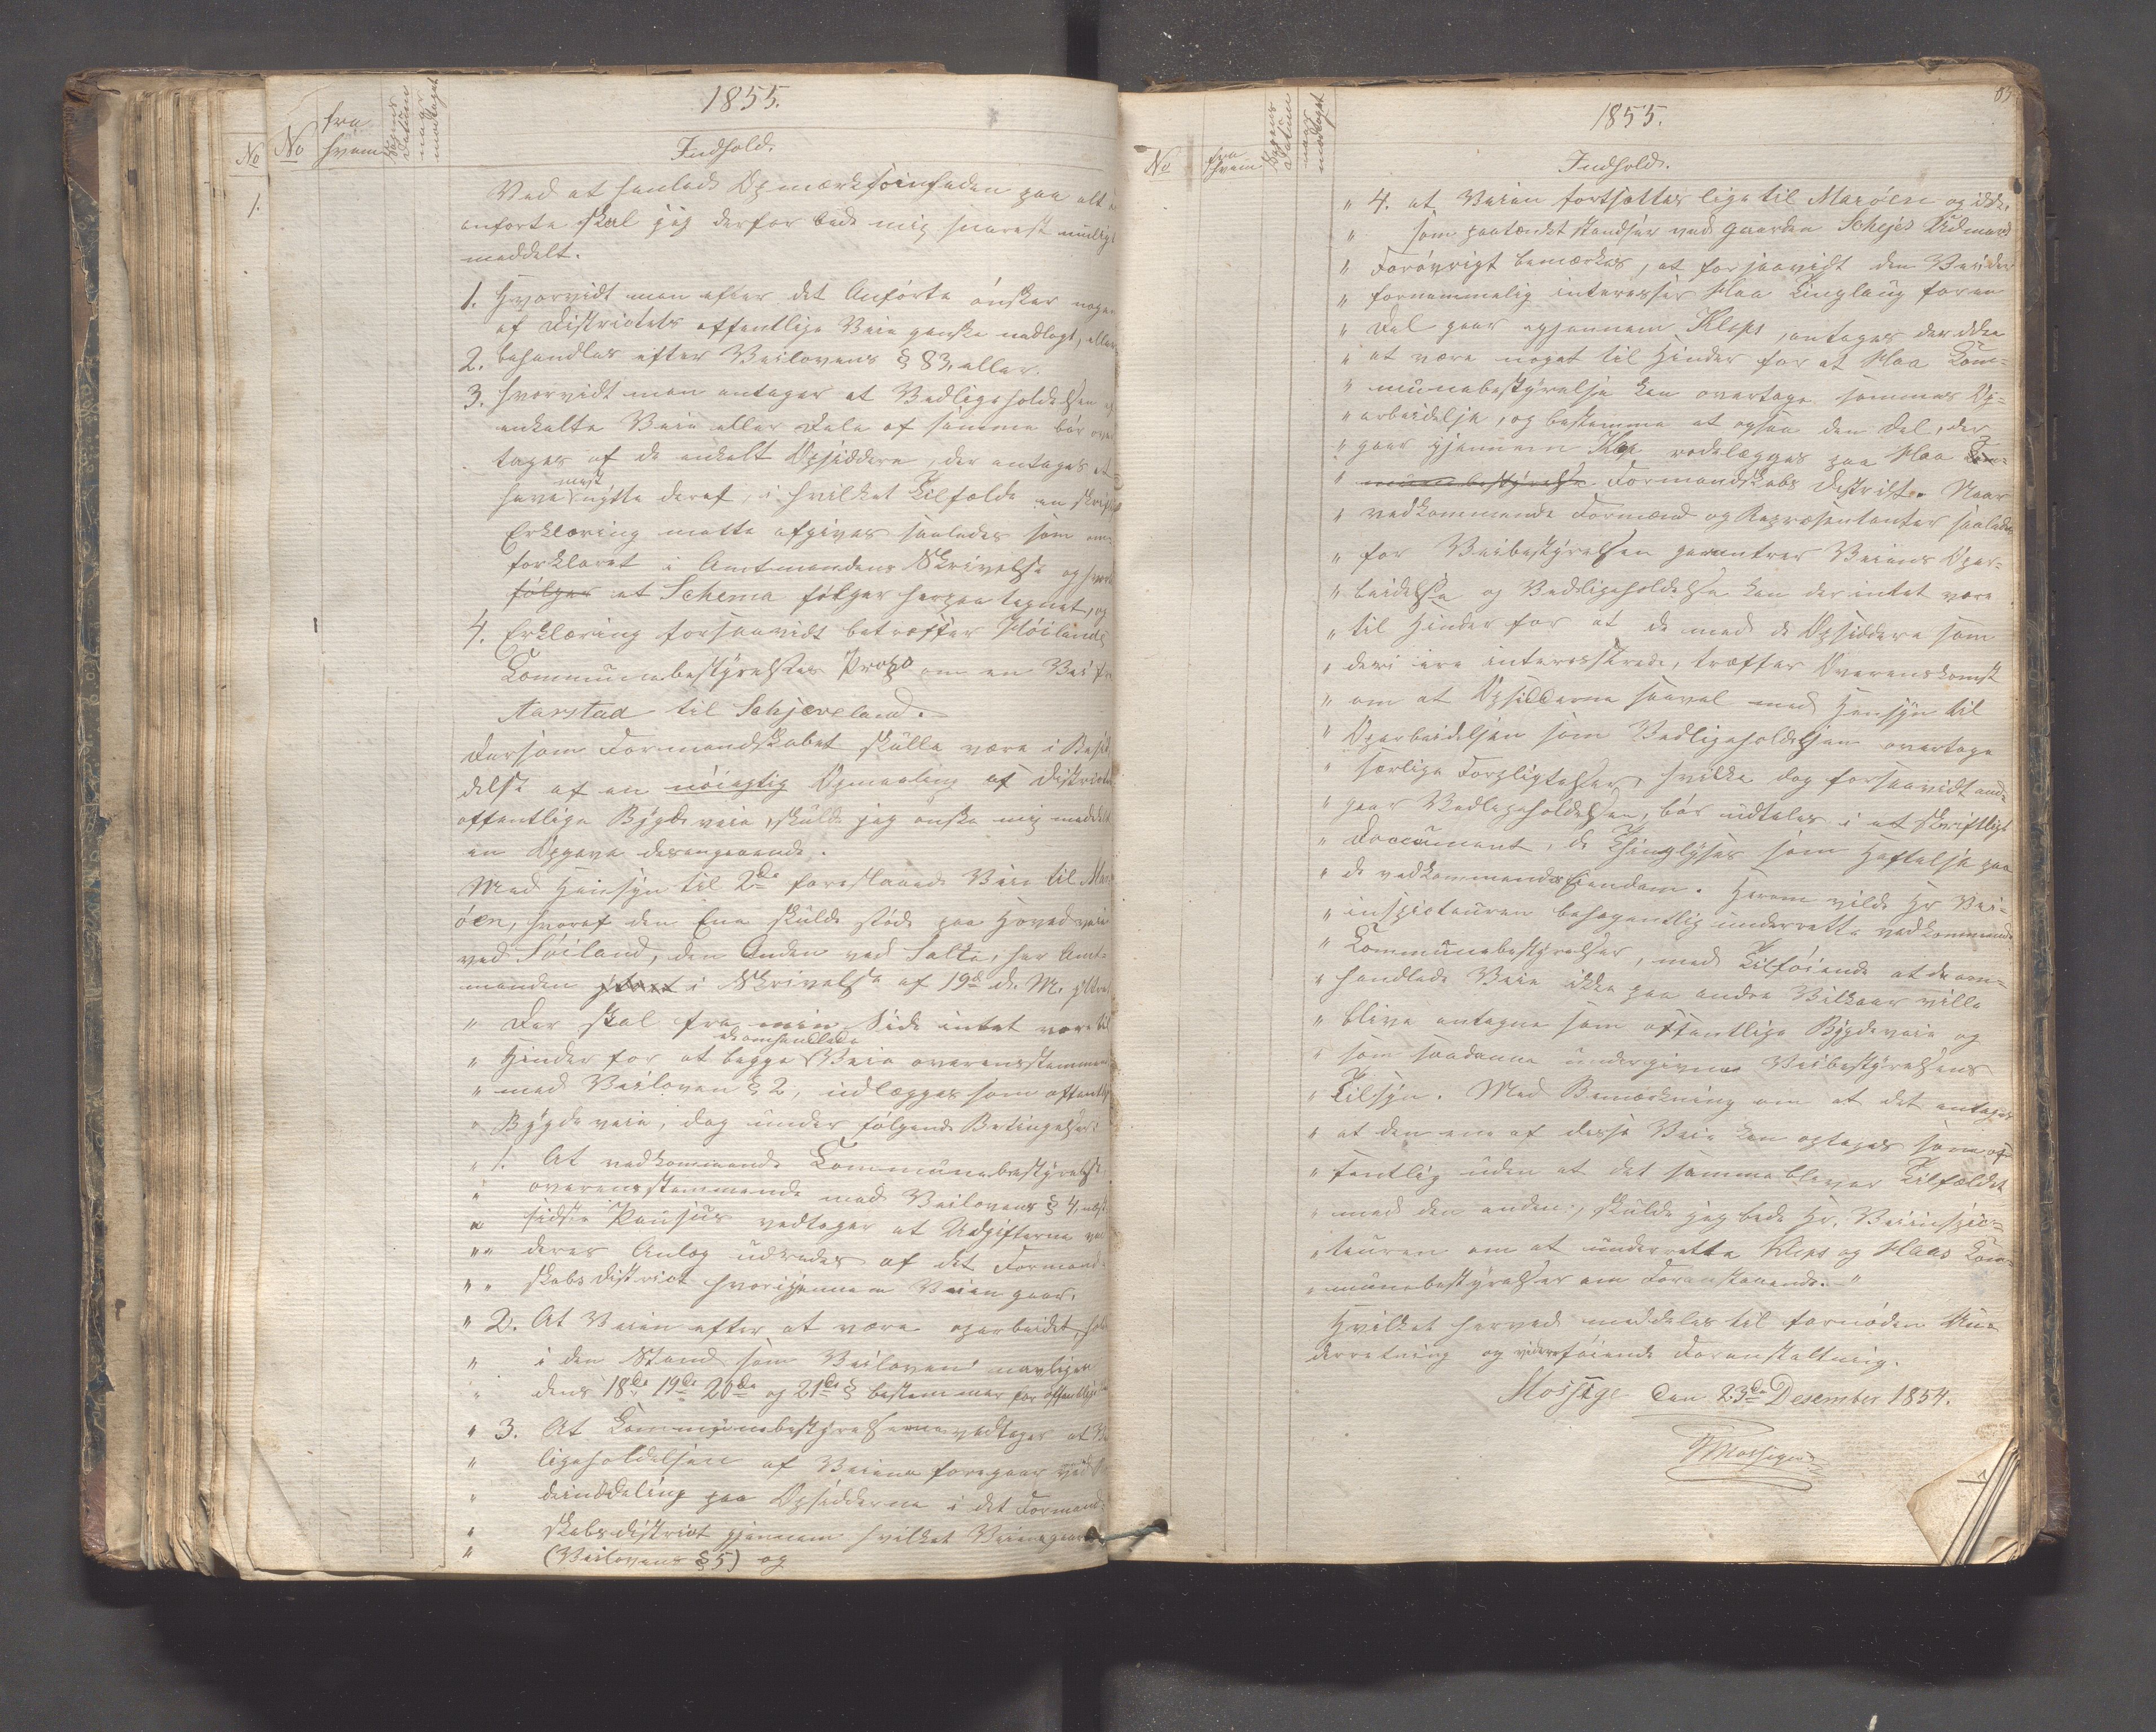 1855.
No
No
fra
hvem
Datum
naar
modtaget
Indhold.
1.
Ved at henlede Opmærksomheden paa alt
anførte skal jeg derfor bede mig snarest muligt
meddelt.
1. Hvorvidt man efter det Anførte ønsker nogen
af Districtets offentlige Veie ganske nedlagt, eller
2. behandles efter Veilovens § 83, eller.
3. hvorvidt man antager at Vedligeholdelsen
enkelte Veie eller Dele af samme bør over
tages af de enkelt Opsiddere, der antages at
mest
have nytte deraf, i hvilket Tilfælde en skriftlig
Erklæring maatte afgives saaledes som om
forklaret i Amtmandens Skrivelse og hvor
følger et Schema følger herpaa tegnet, og
4. Erklæring forsaavidt betræffer Høilands
Communebestyrelses Propo om en Vei fra
Aarstad til Schjæveland.
Dersom Formandskabet skulle være i Besid
delse af en nøiagtig Opmaaling af Districtets
offentlige Bygdeveie, skulde jeg ønske mig meddelt
en Opgave desangaaende.
Med Hensyn til 2de foreslaaede Veie til Mar
öen, hvoraf den Ene skulde støde paa Hovedveien
ved Söiland, den Anden ved Salte, har Amt-
manden i Skrivelse af 19de d. M. yttret
" Der skal fra min Side intet være til
de omhandlede
" Hinder for at begge Veie overensstemmende
" med Veiloven § 2, indlægges som offentlige
" Bygdeveie, dog under følgende Betingelser:
" 1. At vedkommende Communebestyrelse
" overensstemmende med Veilovens § 4, næst
" sidste Passus vedtager at Udgifterne ved
" " deres Anlæg udredes af det Formand-
" " skabsdistrict hvorigjennem Veien gaar.
" 2. At Veien efter at være oparbeidet, holdes
" i den Stand som Veiloven navnligen
" dens 18de 19de 20de og 21de § bestemmer for offentlige
" 3. At Communebestyrelserne vedtager at Ved
" ligeholdelsen af Veiene foregaar ved
" deinddeling paa Opsidderne i det Formand-
" skabsdistrict gjennem hvilket Veiene gaar
" (Veilovens § 5) og
1855.
No
fra
hvem
Datum
naar
modtaget
Indhold.
" 4. at Veien fortsættes lige til Maröen og ikke,
" som paatænkt standser ved Gaarden Schejes Udmark
" Forøvrigt bemærkes, at forsaavidt den Vei der
" fornemmelig interesser Haa Tinglaug for en
" Del gaar igjennem Klep, antages der ikke
" at være noget til Hinder for at Haa Com-
" munebestyrelse kan overtage sammes Op-
" arbeidelse, og bestemme at ogsaa den Del, der
" gaar gjennem Klep rodelægges paa Haa Com-
" munebestyrelse Formandskabs District. Naar
" vedkommende Formænd og Repræsentanter saaledes
" for Veibestyrelsen garantrer Veiens Opar-
" beidelse og Vedligeholdelse kan der intet være
" til Hinder for at de med de Opsiddere som
" deri ere interesserede, træffer Overenskomst
" om at Opsidderne saavel med Hensyn til
" Oparbeidelsen som Vedligeholdelsen overtage
" særlige Forpligtelser, hvilke dog forsaavidt and-
" gaar Vedligeholdelsen, bør udtales i et skriftligt
" Document, de Thinglyses som Heftelse paa
" de vedkommendes Eiendom. Herom vilde Hr Vei-
" inspecteuren behagentlig underrette vedkommende
" Communebestyrelser, med Tilføiende at de om-
" handlede Veie ikke paa andre Vilkaar ville
" blive antagne som offentlige Bygdeveie og
" som saadanne undergivne Veibestyrelsens
" Tilsyn. Med Bemærkning om at det antages
" at den ene af disse Veie kan optages som of-
" fentlig uden at det samme bliver Tilfældet
" med den anden, skulde jeg bede Hr. Veiinspec-
" teuren om at underrette Kleps og Haas Com-
" munebestyrelser om Foranstaaende."
Hvilket herved meddeles til fornøden Un-
derretning og videre føiende Foranstaltning.
Mossige den 23de Desember 1854.
Mossige